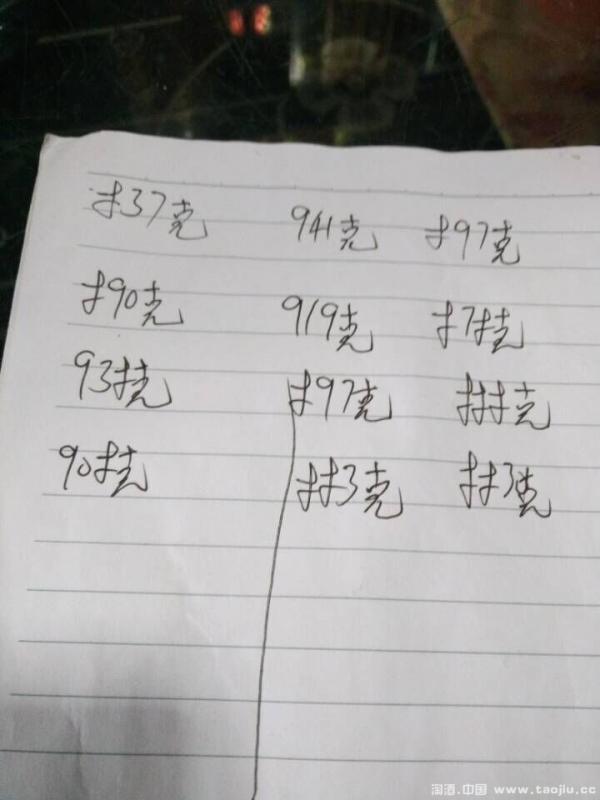 扌37克 941克 扌97克
扌90克 919克 扌7扌克
93扌克 扌97克 扌扌扌克
90扌克 扌扌3克 扌扌3克
淘酒.中国 www.taojiu.cc